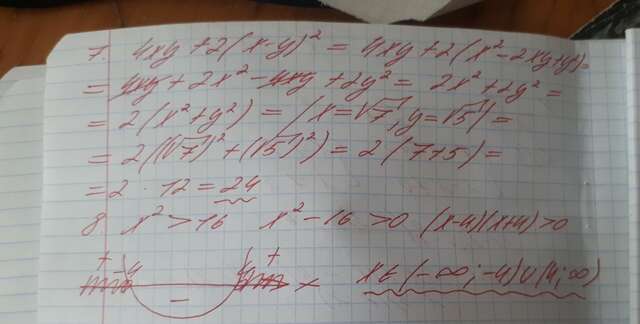 7. 4xy + 2(x-y)² = 4xy + 2(x² - 2xy + y²) =
= 4xy + 2x² - 4xy + 2y² = 2x² + 2y² =
= 2(x² + y²) = /x = √7, y = √5/ =
= 2((√7)² + (√5)²) = 2(7+5) =
= 2 · 12 = 24
8. x² > 16 x² - 16 > 0 (x-4)(x+4) > 0
+ -4 - 4 + x x ∈ (-∞; -4) ∪ (4; ∞)